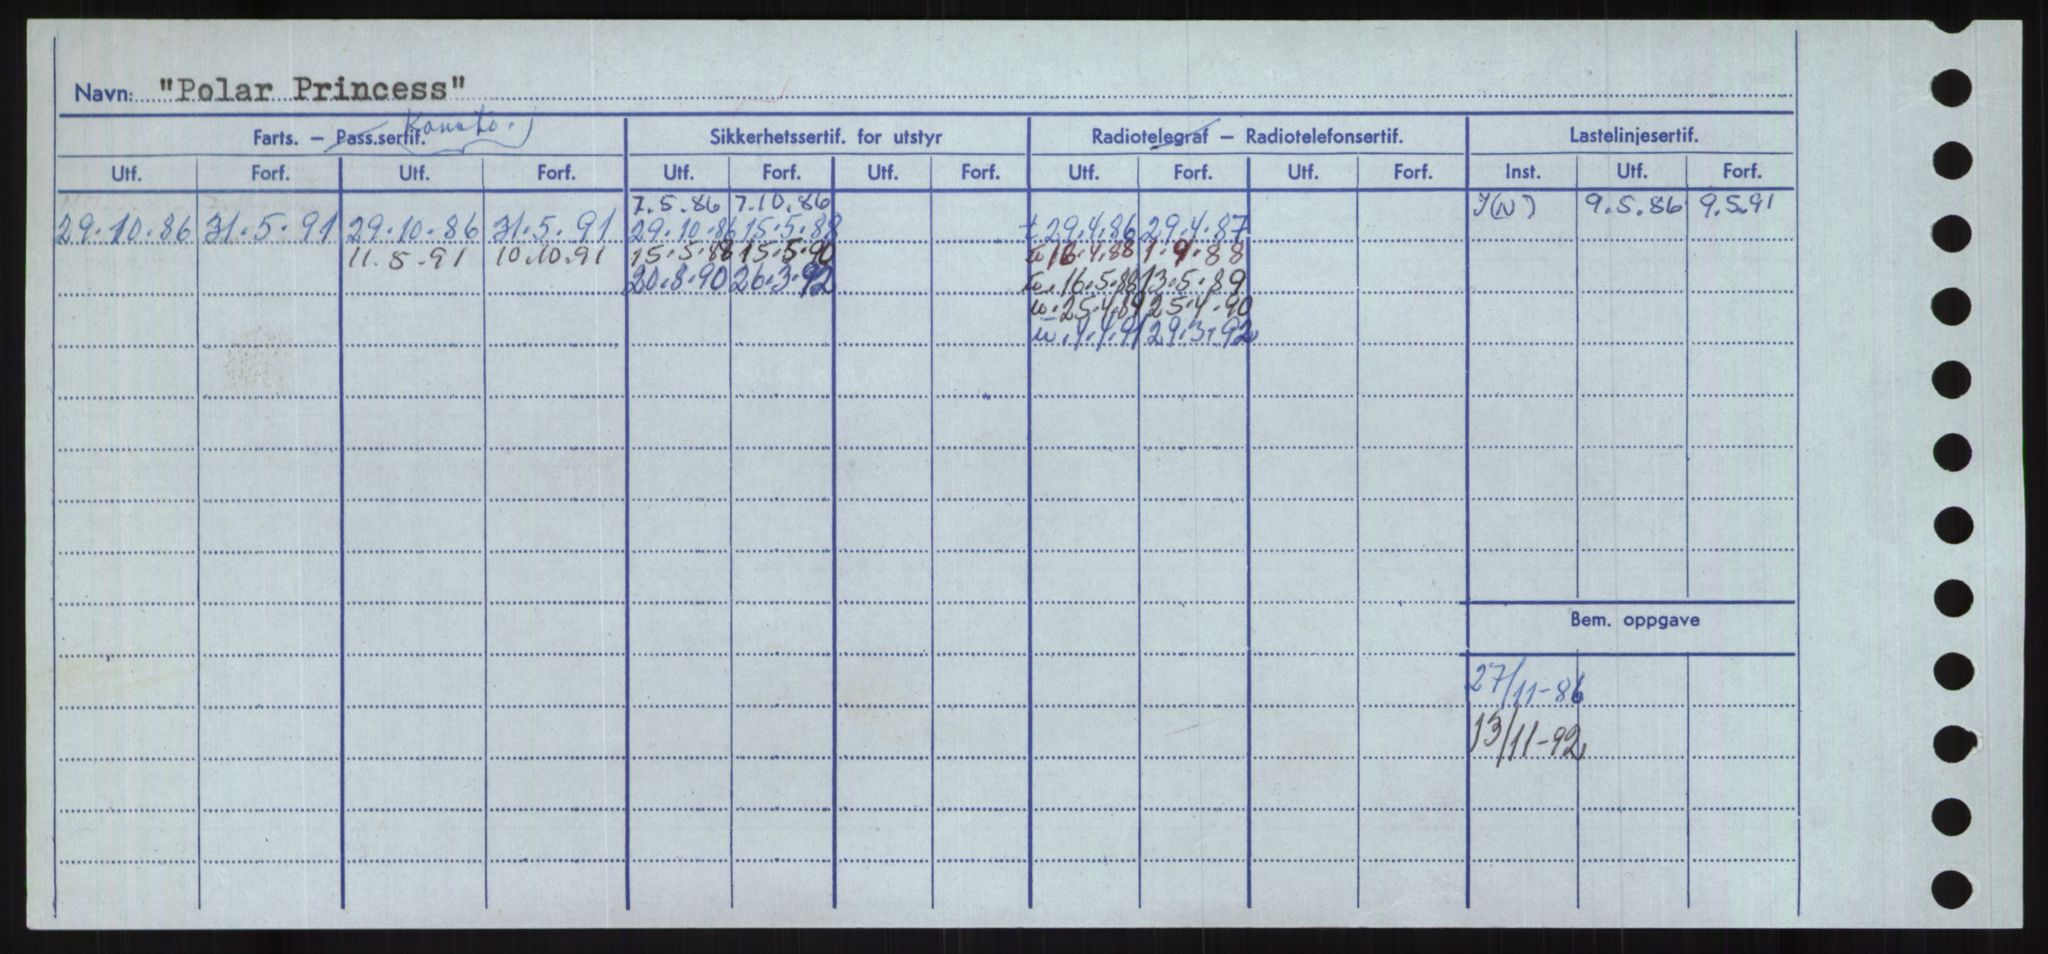 Navn: "Polar Princess"
Farts. – Pass.sertif. Sikkerhetssertif. for utstyr Radiotelegraf – Radiotelefonsertif. Lastelinjesertif.
Utf. Forf. Utf. Forf. Utf. Forf. Utf. Forf. Utf. Forf. Utf. Forf. Inst. Utf. Forf.
7.5.86 7.10.86 I(N) 9.5.86 9.5.91
29.10.86 31.5.91 29.10.86 31.5.91 29.10.86 15.5.88 t 29.4.86 29.4.87
11.5.91 10.10.91 15.5.88 15.5.90 16.4.88 1.9.88
20.8.90 26.3.92 16.5.88 13.5.89
25.4.89 25.4.90
4.4.91 29.3.92
Bem. oppgave
27/11-86
13/11-92